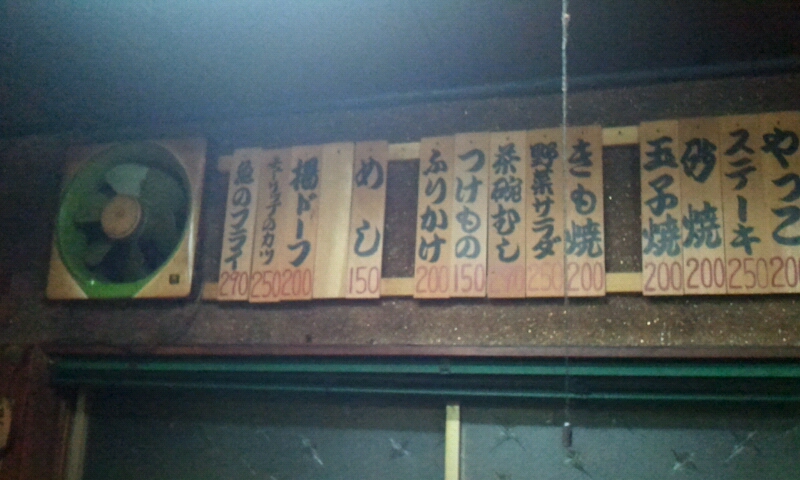 やっこ
20
ステーキ
250
砂焼
200
玉子焼
200
きも焼
200
野菜サラダ
250
茶碗むし
つけもの
150
ふりかけ
200
めし
150
揚ドーフ
200
のカツ
250
魚のフライ
290